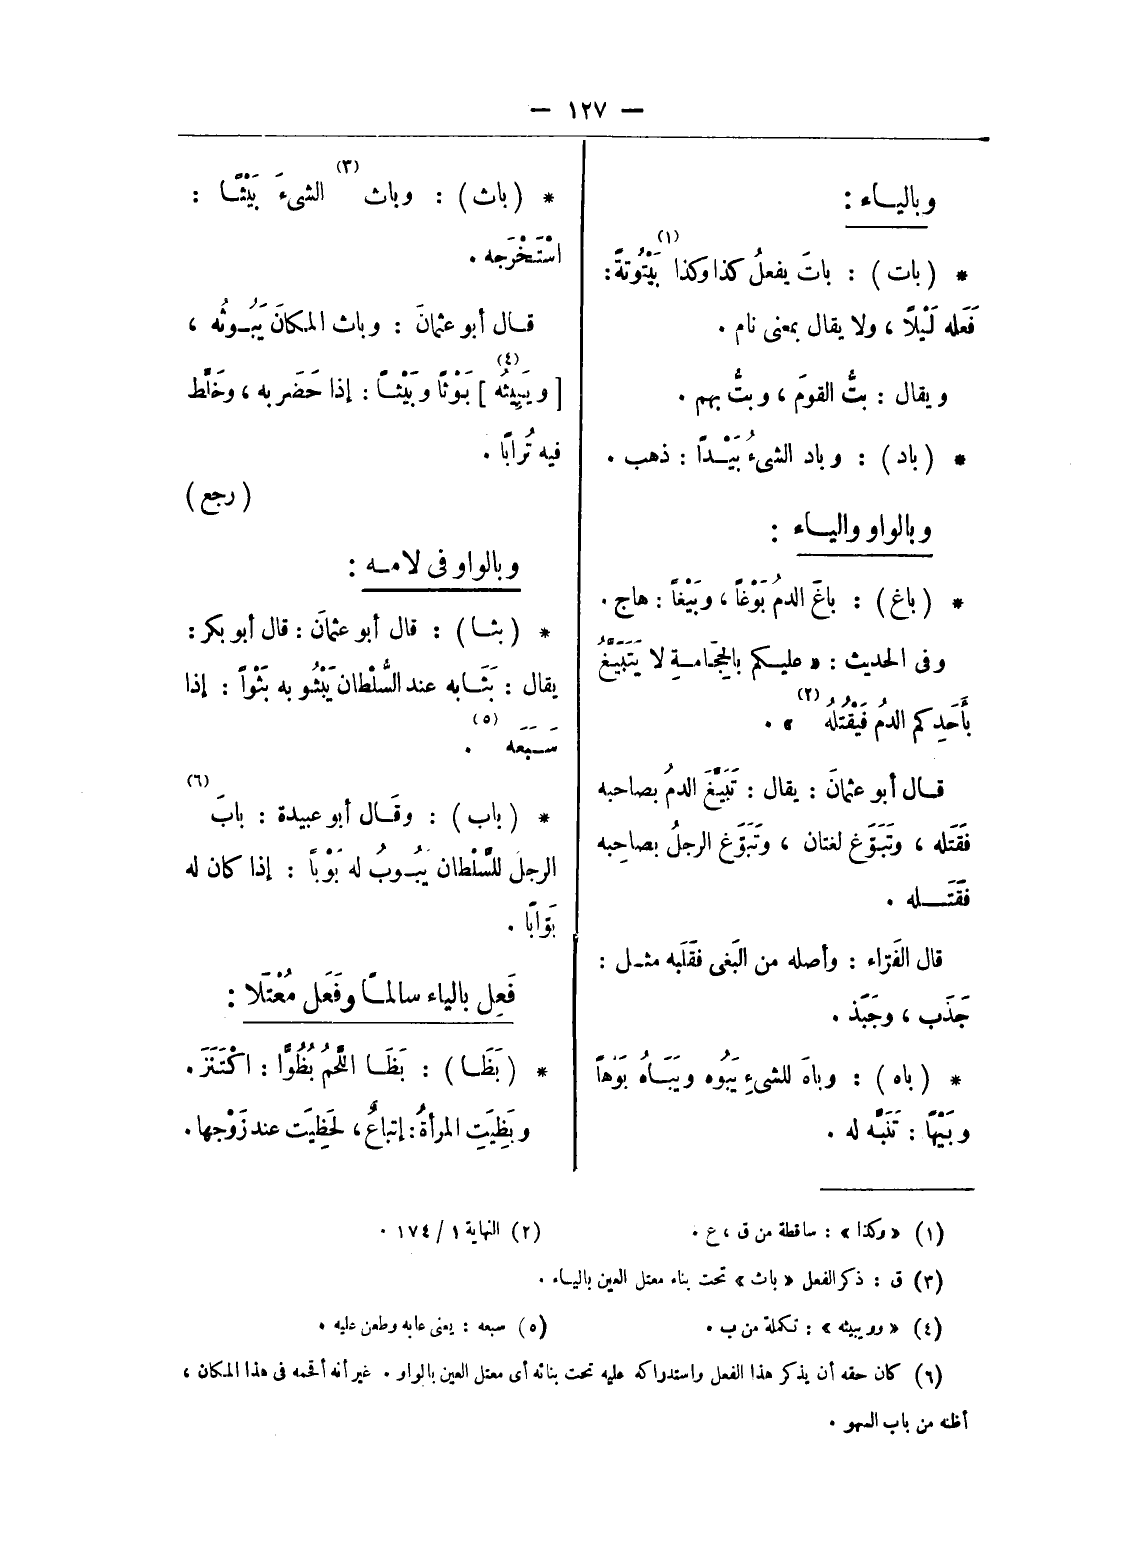 — ١٢٧ —
وبالياء :
* ( بات ) : باتَ يفعلُ كذا وكذا (١) بَيْتُوتةً :
فَعَله لَيْلًا ، ولا يقال بمعنى نام .
ويقال : بتُّ القومَ ، وبتُّ بهم .
* ( باد ) : وباد الشىءُ بَيْدًا : ذهب .
وبالواو والياء :
* ( باغ ) : باغَ الدمُ بَوْغاً ، وبَيْغاً : هاج .
وفى الحديث : « عليكم بالحِجَامةِ لا يَتَبَيَّغُ
بأَحَدِكم الدمُ فَيَقْتُلُه (٢) » .
قال أبو عثمانَ : يقال : تَبَيَّغَ الدمُ بصاحبه
فقَتَله ، وتَبَوَّغ لغتان ، وتَبَوَّغ الرجلُ بصاحِبه
فقَتَله .
قال الفَرّاء : وأصله من البَغى فقَلَبه مثل :
جَذَب ، وجَبَذ .
* ( باه ) : وباهَ للشىءِ يَبُوه ويَبَاهُ بَوْهاً
وبَيْهًا : تَنَبَّه له .
* ( باث ) : وباث (٣) الشىءَ بَيْثًا :
اسْتَخْرَجه .
قال أبو عثمانَ : وباث المكانَ يَبُوثُه ،
[ ويَبِيثُه (٤) ] بَوْثًا وبَيْثاً : إذا حَضَر به ، وخَلَط
فيه تُرابًا .
( رجع )
وبالواو فى لامه :
* ( بثا ) : قال أبو عثمانَ : قال أبو بكر :
يقال : بَثَا به عند السُّلْطان يَبْثُو به بَثْواً : إذا
سَبَعَه (٥) .
* ( باب ) : وقَال أبو عبيدة : بابَ (٦)
الرجلُ للسُّلْطان يَبُوبُ له بَوْباً : إذا كان له
بَوّابًا .
فَعِل بالياء سالمًا وفَعَل مُعْتَلا :
* ( بَظَا ) : بَظَا اللَّحمُ بُظُوًّا : اكْتَنَزَ .
وبَظِيَتِ المرأةُ : إتباعٌ ، لحَظِيَت عند زَوْجها .
(١) « وكذا » : ساقطة من ق ، ع .
(٢) النهاية ١ / ١٧٤ .
(٣) ق : ذكر الفعل « باث » تحت بناء معتل العين بالياء .
(٤) « وويبيثه » : تكملة من ب .
(٥) سبعه : يعنى عابه وطعن عليه .
(٦) كان حقه أن يذكر هذا الفعل واستدراكه عليه تحت بنائه أى معتل العين بالواو . غير أنه أقحمه فى هذا المكان ،
أظنه من باب السهو .